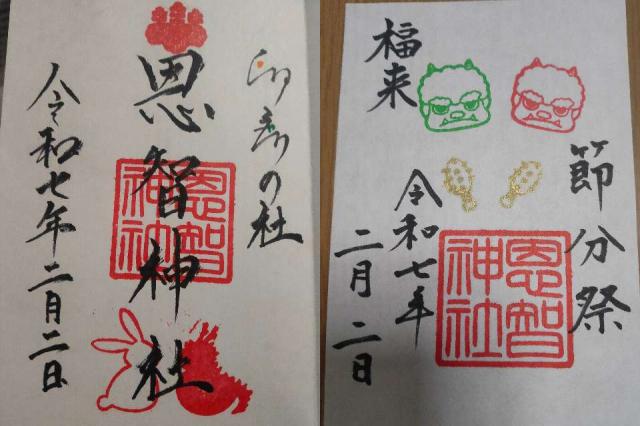 卯辰の社
恩智神社
恩智神社
令和七年二月二日
節分祭
恩智神社
福来
令和七年
二月二日